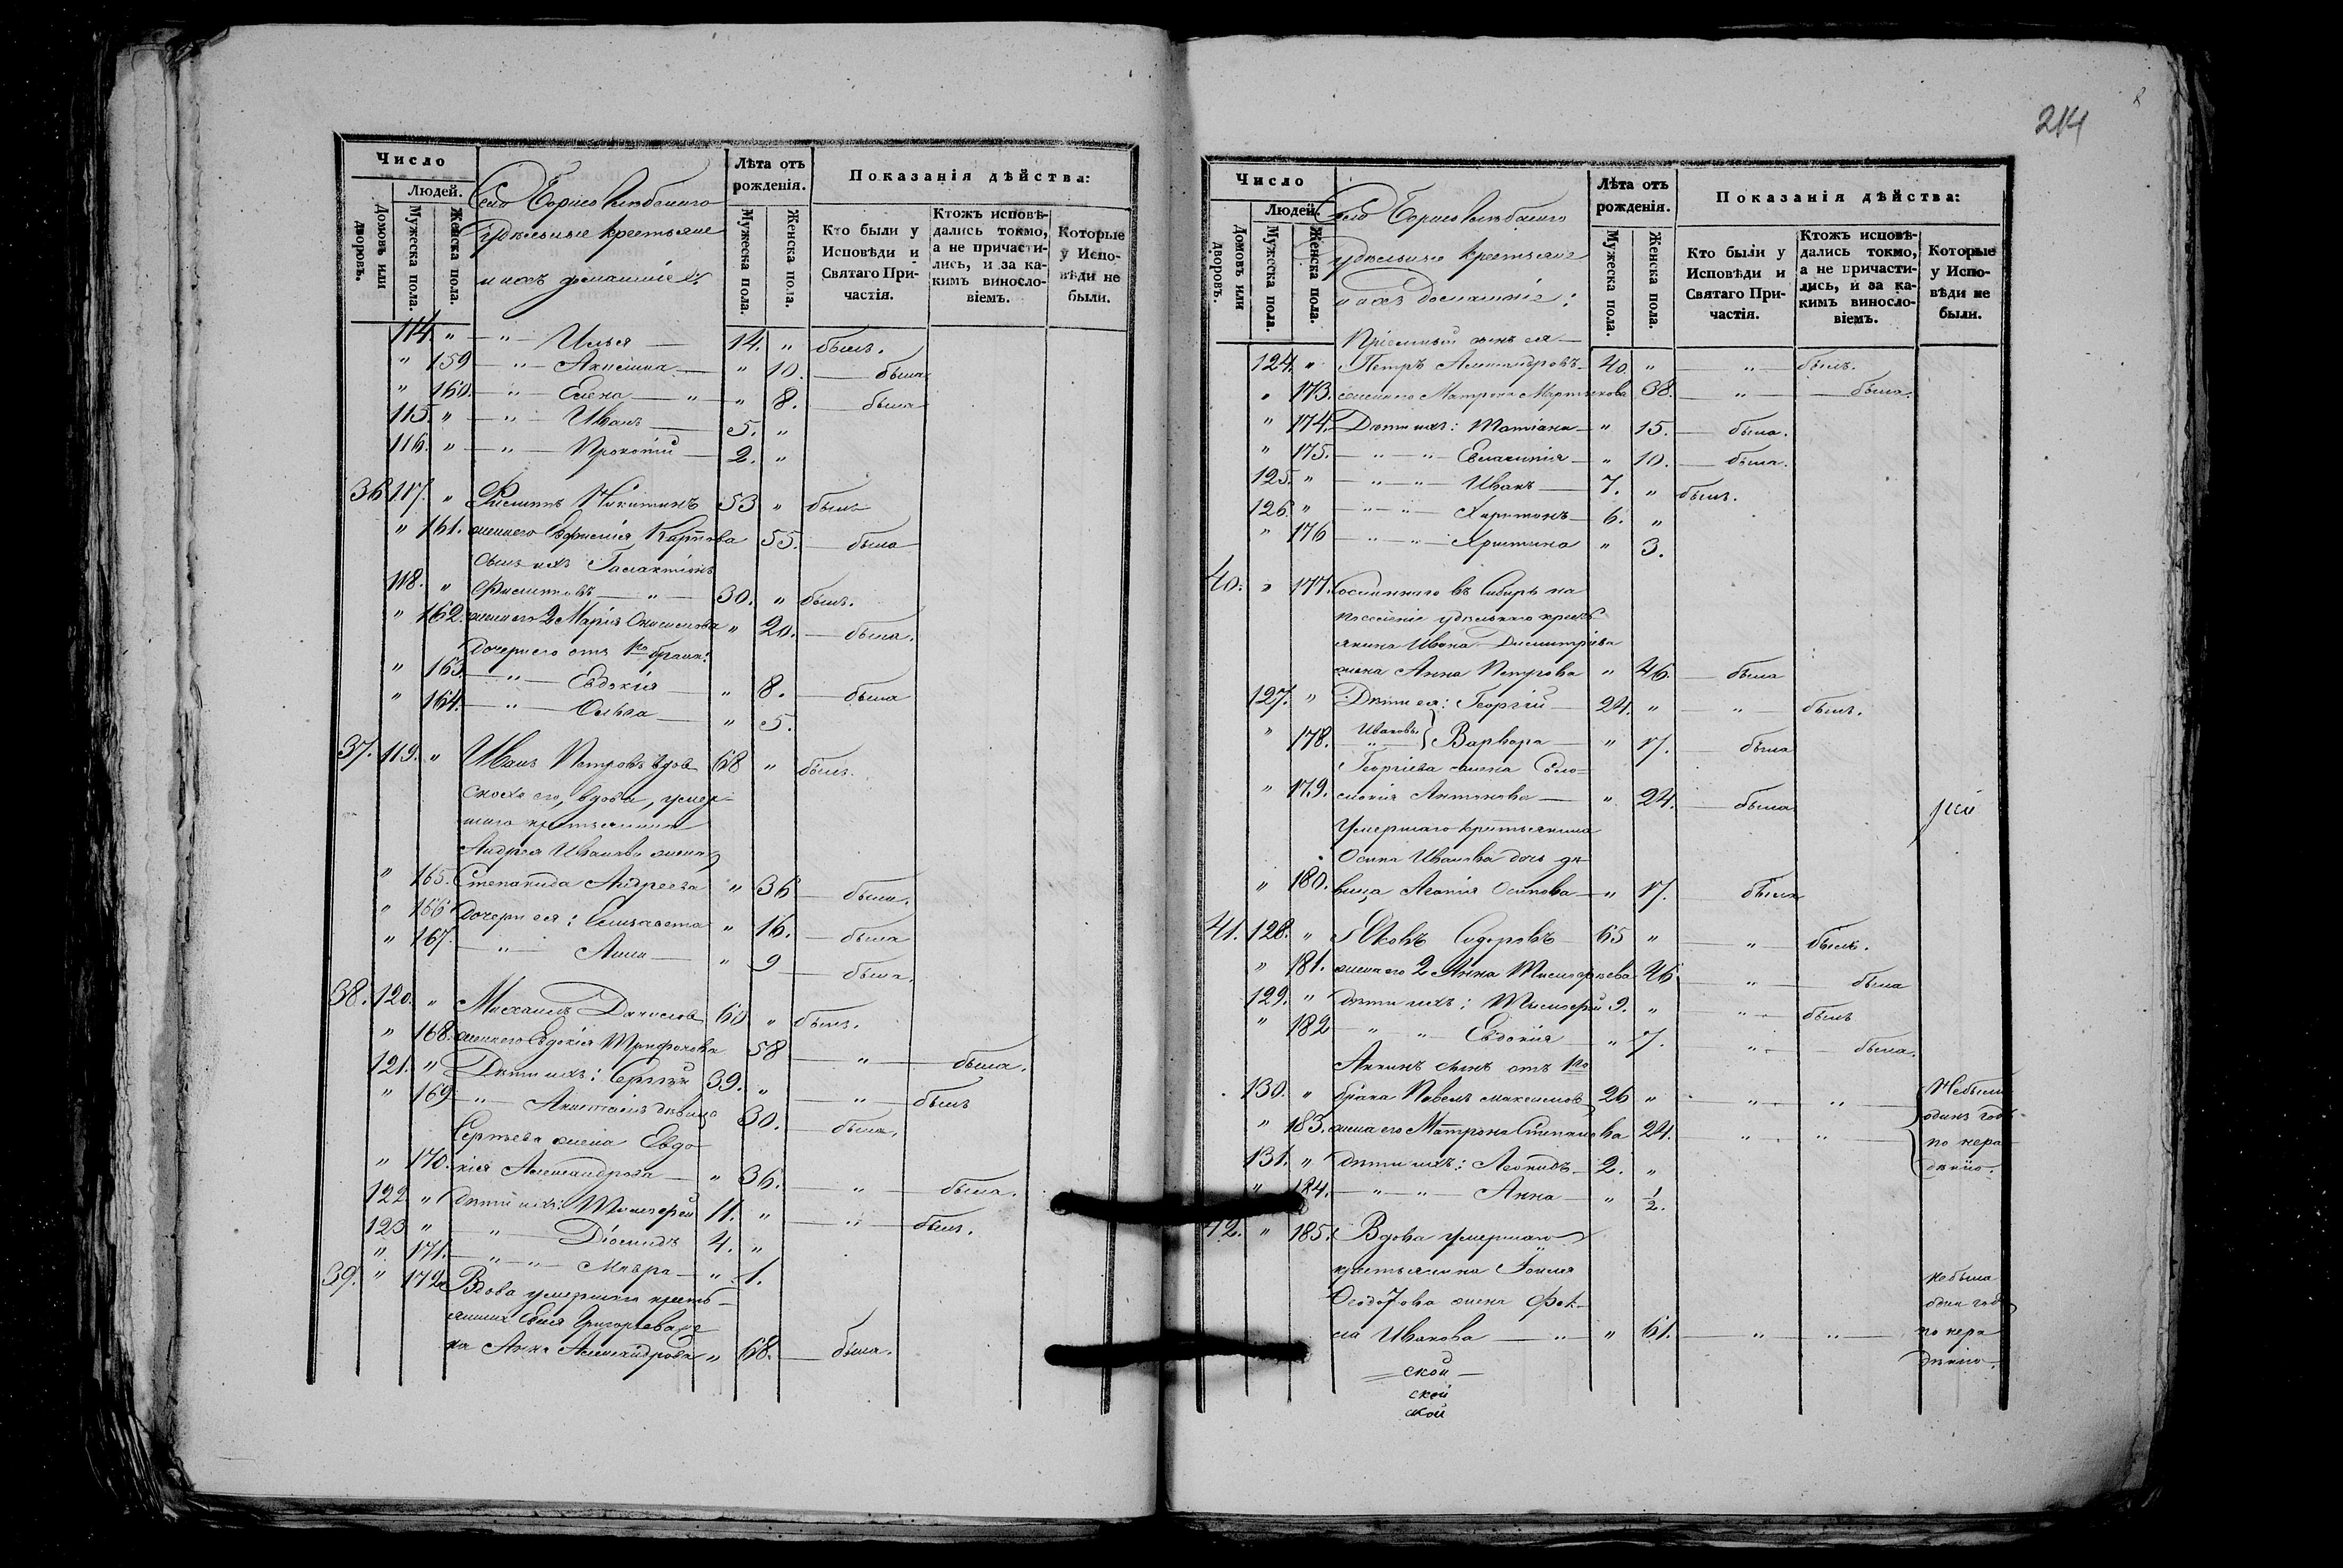 Число
Людей.
Домовъ или дворовъ.
Мужеска пола.
Женска пола.
Село Борисоглѣбскаго
Удѣльные крестьяне
и ихъ домашніе
Лѣта отъ рожденія.
Мужеска пола.
Женска пола.
Показанія дѣйства:
Кто были у Исповѣди и Святаго Причастія.
Ктожъ исповѣдались токмо, а не причастились, и за какимъ винословіемъ.
Которые у Исповѣди не были.
114. " — " — Илья — 14. " былъ.
" 159 — " — Анисія — " 10. — была
" 160. — " — Елена — " — " 8. — была
115. " — " — Иванъ — 5. "
116. " — " — Прокопій — 2. "
36 117. " Филиппъ Никитинъ 53 " былъ
" 161. жена его Евфимія Карпова 55. — была
Сынъ ихъ Галактіонъ
118. " Филиповъ — " — 30. " былъ.
" 162. жена его 2 Марія Онисимова " 20. — была.
Дочери его отъ 1го брака:
" 163. — " — Евдокія — " 8. — была
" 164. — " — Ольга — " 5.
37. 119. " Иванъ Петровъ вдов 68 " былъ.
Сноха его, вдова, умер-
шаго крестьянина
Андрея Иванова жена
" 165. Степанида Андреева " 36 — была.
" 166 дочери ея: Елисавета " 16. — была
" 167. — " — Анна — " 9 — была.
38. 120. " Михаилъ Данилов 60 " былъ.
" 168. жена его Евдокія Трифонова 58 — " — была.
121. " Дѣти ихъ: Сергѣй 39. " — " — былъ
" 169 — " — Анастасія дѣвица 30. — была.
Сергѣева жена Евдо-
" 170. кія Александрова — " 36. " — была.
122. " Дѣти ихъ: Тимоѳей 11. " — " — былъ.
123 " — " — Діомидъ 4. "
" 171. — " — " — Мавра — " 1.
39. " 172 Вдова умершаго кресть-
янина Ильи Григорьева же-
на Анна Александрова " 68. — была.
214
Число
Людей.
Домовъ или дворовъ.
Мужеска пола.
Женска пола.
Село Борисоглѣбскаго
удѣльные крестьяне
и ихъ домашніе:
Лѣта отъ рожденія.
Мужеска пола.
Женска пола.
Показанія дѣйства:
Кто были у Исповѣди и Святаго Причастія.
Ктожъ исповѣдались токмо, а не причастились, и за какимъ винословіемъ.
Которые у Исповѣди не были.
Пріемный сынъ ея —
124. " Петръ Александровъ 40. " — " — былъ.
" 173. жена его Матрона Мартынова 38. — " — была.
" 174. Дѣти ихъ: Татіана — " 15. — была.
" 175. — " — " — Евлампія — " 10. — была.
125. " — " — " — Иванъ — 7. " былъ.
126. " — " — " — Харитонъ — 6. "
" 176 — " — " — Христина " 3.
40. " 177. Сосланнаго въ Сибирь на
поселеніе удѣльнаго кресть-
янина Ивана Димитріева
жена Анна Петрова " 46. — была
127. " Дѣти ея: Георгій 24. " — " — былъ.
" 178. Ивановы Варвара — " 17. — была
Георгіева жена Соло-
" 179. монія Антонова — " 24. — была
Умершаго крестьянина
Осипа Иванова дочь дѣ-
" 180. вица Агапія Осипова — " 17. — была
41. 128. " Яковъ Сидоровъ 65 " — " — былъ.
" 181. жена его 2 Анна Тимоѳеева 46 — " — была
129. " дѣти ихъ: Тимоѳей 9. " — " — былъ
" 182 — " — " Евдокія — " 7. — " — была.
Аннинъ сынъ отъ 1го
130. " брака Павелъ Максимов 26 " — " — " — Не были
" 183. жена его Матрона Степанова 24. — " — " — одинъ годъ по нера-
131. " дѣти ихъ: Леонидъ 2. " дѣнію.
" 184. — " — " — Анна — " 1/2.
42. " 185. Вдова умершаго
крестьянина Іоиля
Ѳеодотова жена Фек-
ла Иванова — " — " 61. — " — " — не была один годъ по нера дѣнію.
ской
ской
ской